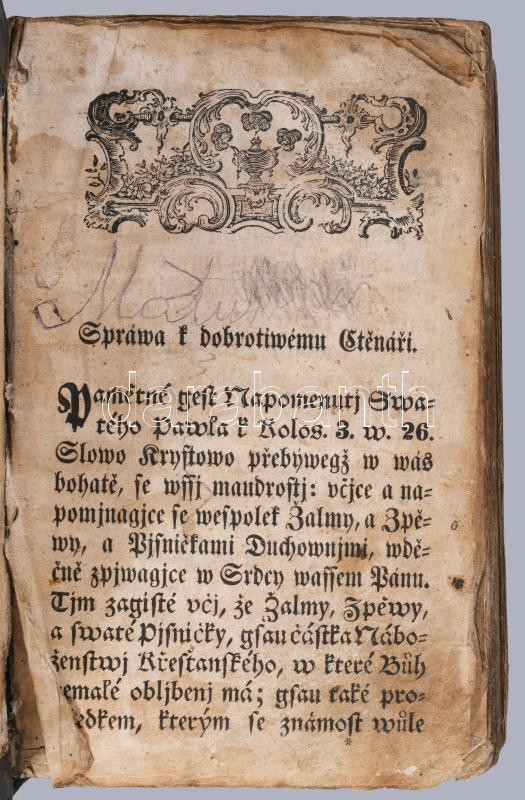 Spráwa k dobrotiwému Čtenáři.
Pamětné gest Napomenutj Swa-
tého Pawla k Kolos. 3. w. 26.
darabanth
Slowo Krystowo přebýwegž w wás
bohatě, se wssj maudrostj: včjce a na-
pomjnagjce se wespolek Žalmy, a Zpě-
wy, a Pjsničkami Duchownjmi, wdě-
čně zpjwagjce w Srdcy wassem Pánu.
Tjm zagisté včj, že Žalmy, Zpěwy,
a swaté Pjsničky, gsau částka Nábo-
ženstwj Křesťanského, w které Bůh
nemalé obljbenj má; gsau také pro-
středkem, kterým se známost wůle
*